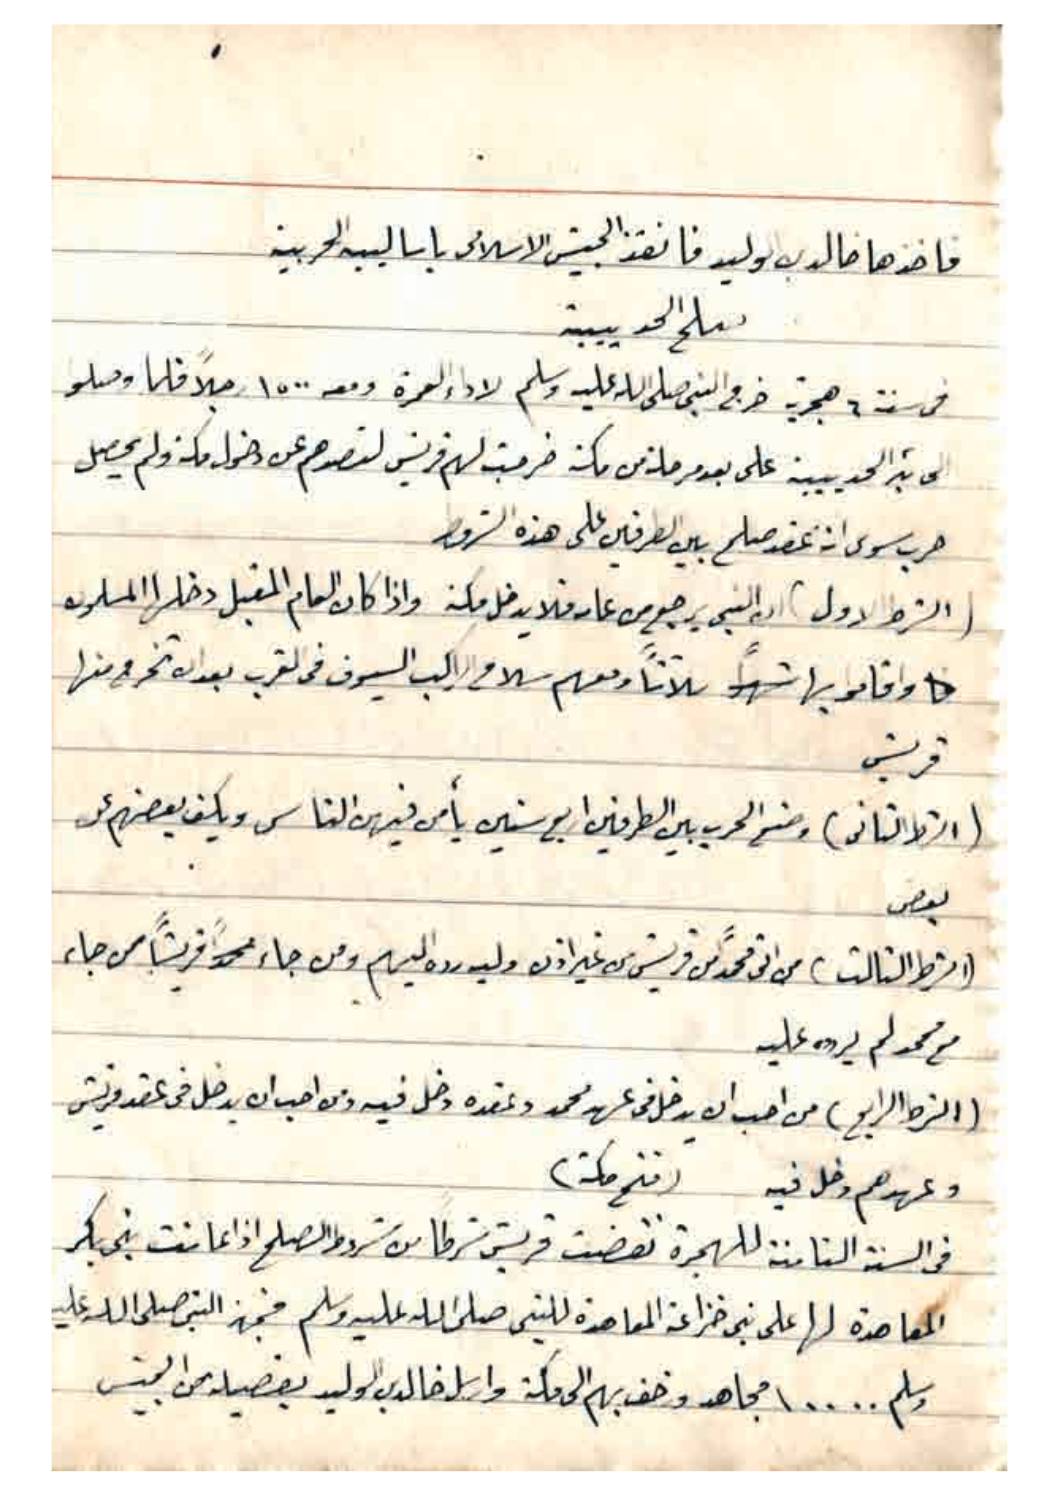 فاخذها خالد بن الوليد فانقذ الجيش الاسلامى باساليبه الحربية
صلح الحديبية
فى سنة ٦ هجرية خرج النبى صلى الله عليه وسلم لاداء العمرة ومعه ١٥٠٠ رجلاً فلما وصلوا
الى بئر الحديبية على بعد مرحلة من مكة خرجت لهم قريش لتصدهم عن دخول مكة ولم يحصل
حرب سوى انه عقد صلح بين الطرفين على هذه الشروط
(الشرط الاول) ان النبى يرجع من عامه فلا يدخل مكة واذا كان العام المقبل دخلها المسلمون
واقاموا بها ثلاثاً ومعهم سلاح الراكب السيوف فى القرب بعد ان تخرج منها
قريش
(الشرط الثانى) وضع الحرب بين الطرفين اربع سنين يأمن فيهن الناس ويكف بعضهم عن
بعض
(الشرط الثالث) من اتى محمداً من قريش من غير اذن وليه رده اليهم ومن جاء قريشاً ممن جاء
مع محمد لم يردوه عليه
(الشرط الرابع) من احب ان يدخل فى عهد محمد وعقده دخل فيه ومن احب ان يدخل فى عقد قريش
وعهدهم دخل فيه (فتح مكة)
فى السنة الثامنة للهجرة نقضت قريش شرطاً من شروط الصلح اذ اعانت بنى بكر
المعاهدة لها على بنى خزاعة المعاهدة للنبى صلى الله عليه وسلم فجهز النبى صلى الله عليه
وسلم ١٠٠٠٠ مجاهد وزحف بهم الى مكة وارسل خالد بن الوليد بفصيلة من الجيش